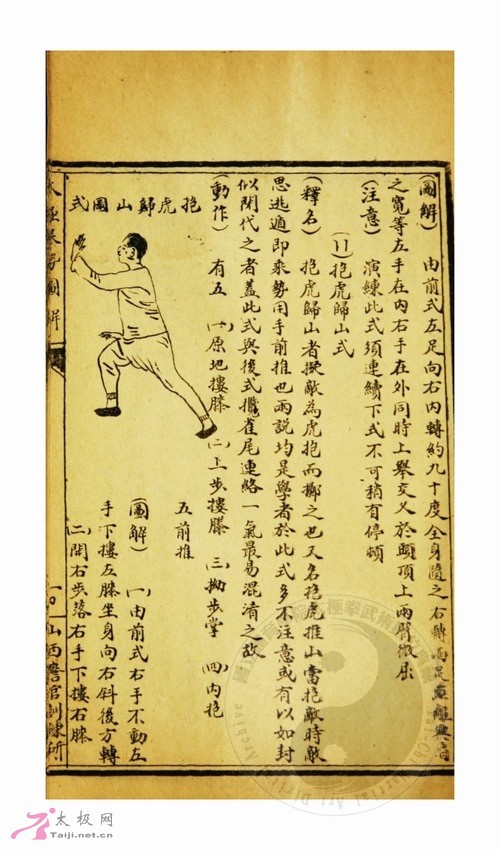 (圖解) 由前式左足向右內轉約九十度全身隨之右轉兩足距離與肩
之寬等左手在內右手在外同時上舉交乂於頭頂上兩臂微屈
(注意) 演練此式須連續下式不可稍有停頓
(11)抱虎歸山式
(釋名) 抱虎歸山者擬敵為虎抱而擲之也又名抱虎推山當抱敵時敵
思逃遁即乘勢用手前推也兩說均是學者於此式多不注意或有以如封
似閉代之者蓋此式與後式攬雀尾連絡一氣最易混淆之故
(動作) 有五 一)原地摟膝 二)上步摟膝 三)拗步掌 四)內抱
五前推
抱虎歸山圖式
(圖解) 一)由前式右手不動左
手下摟左膝坐身向右斜後方轉
二)開右步落右手下摟右膝
太極拳勢圖解
山西警官訓練所
太极网
Taiji.net.cn